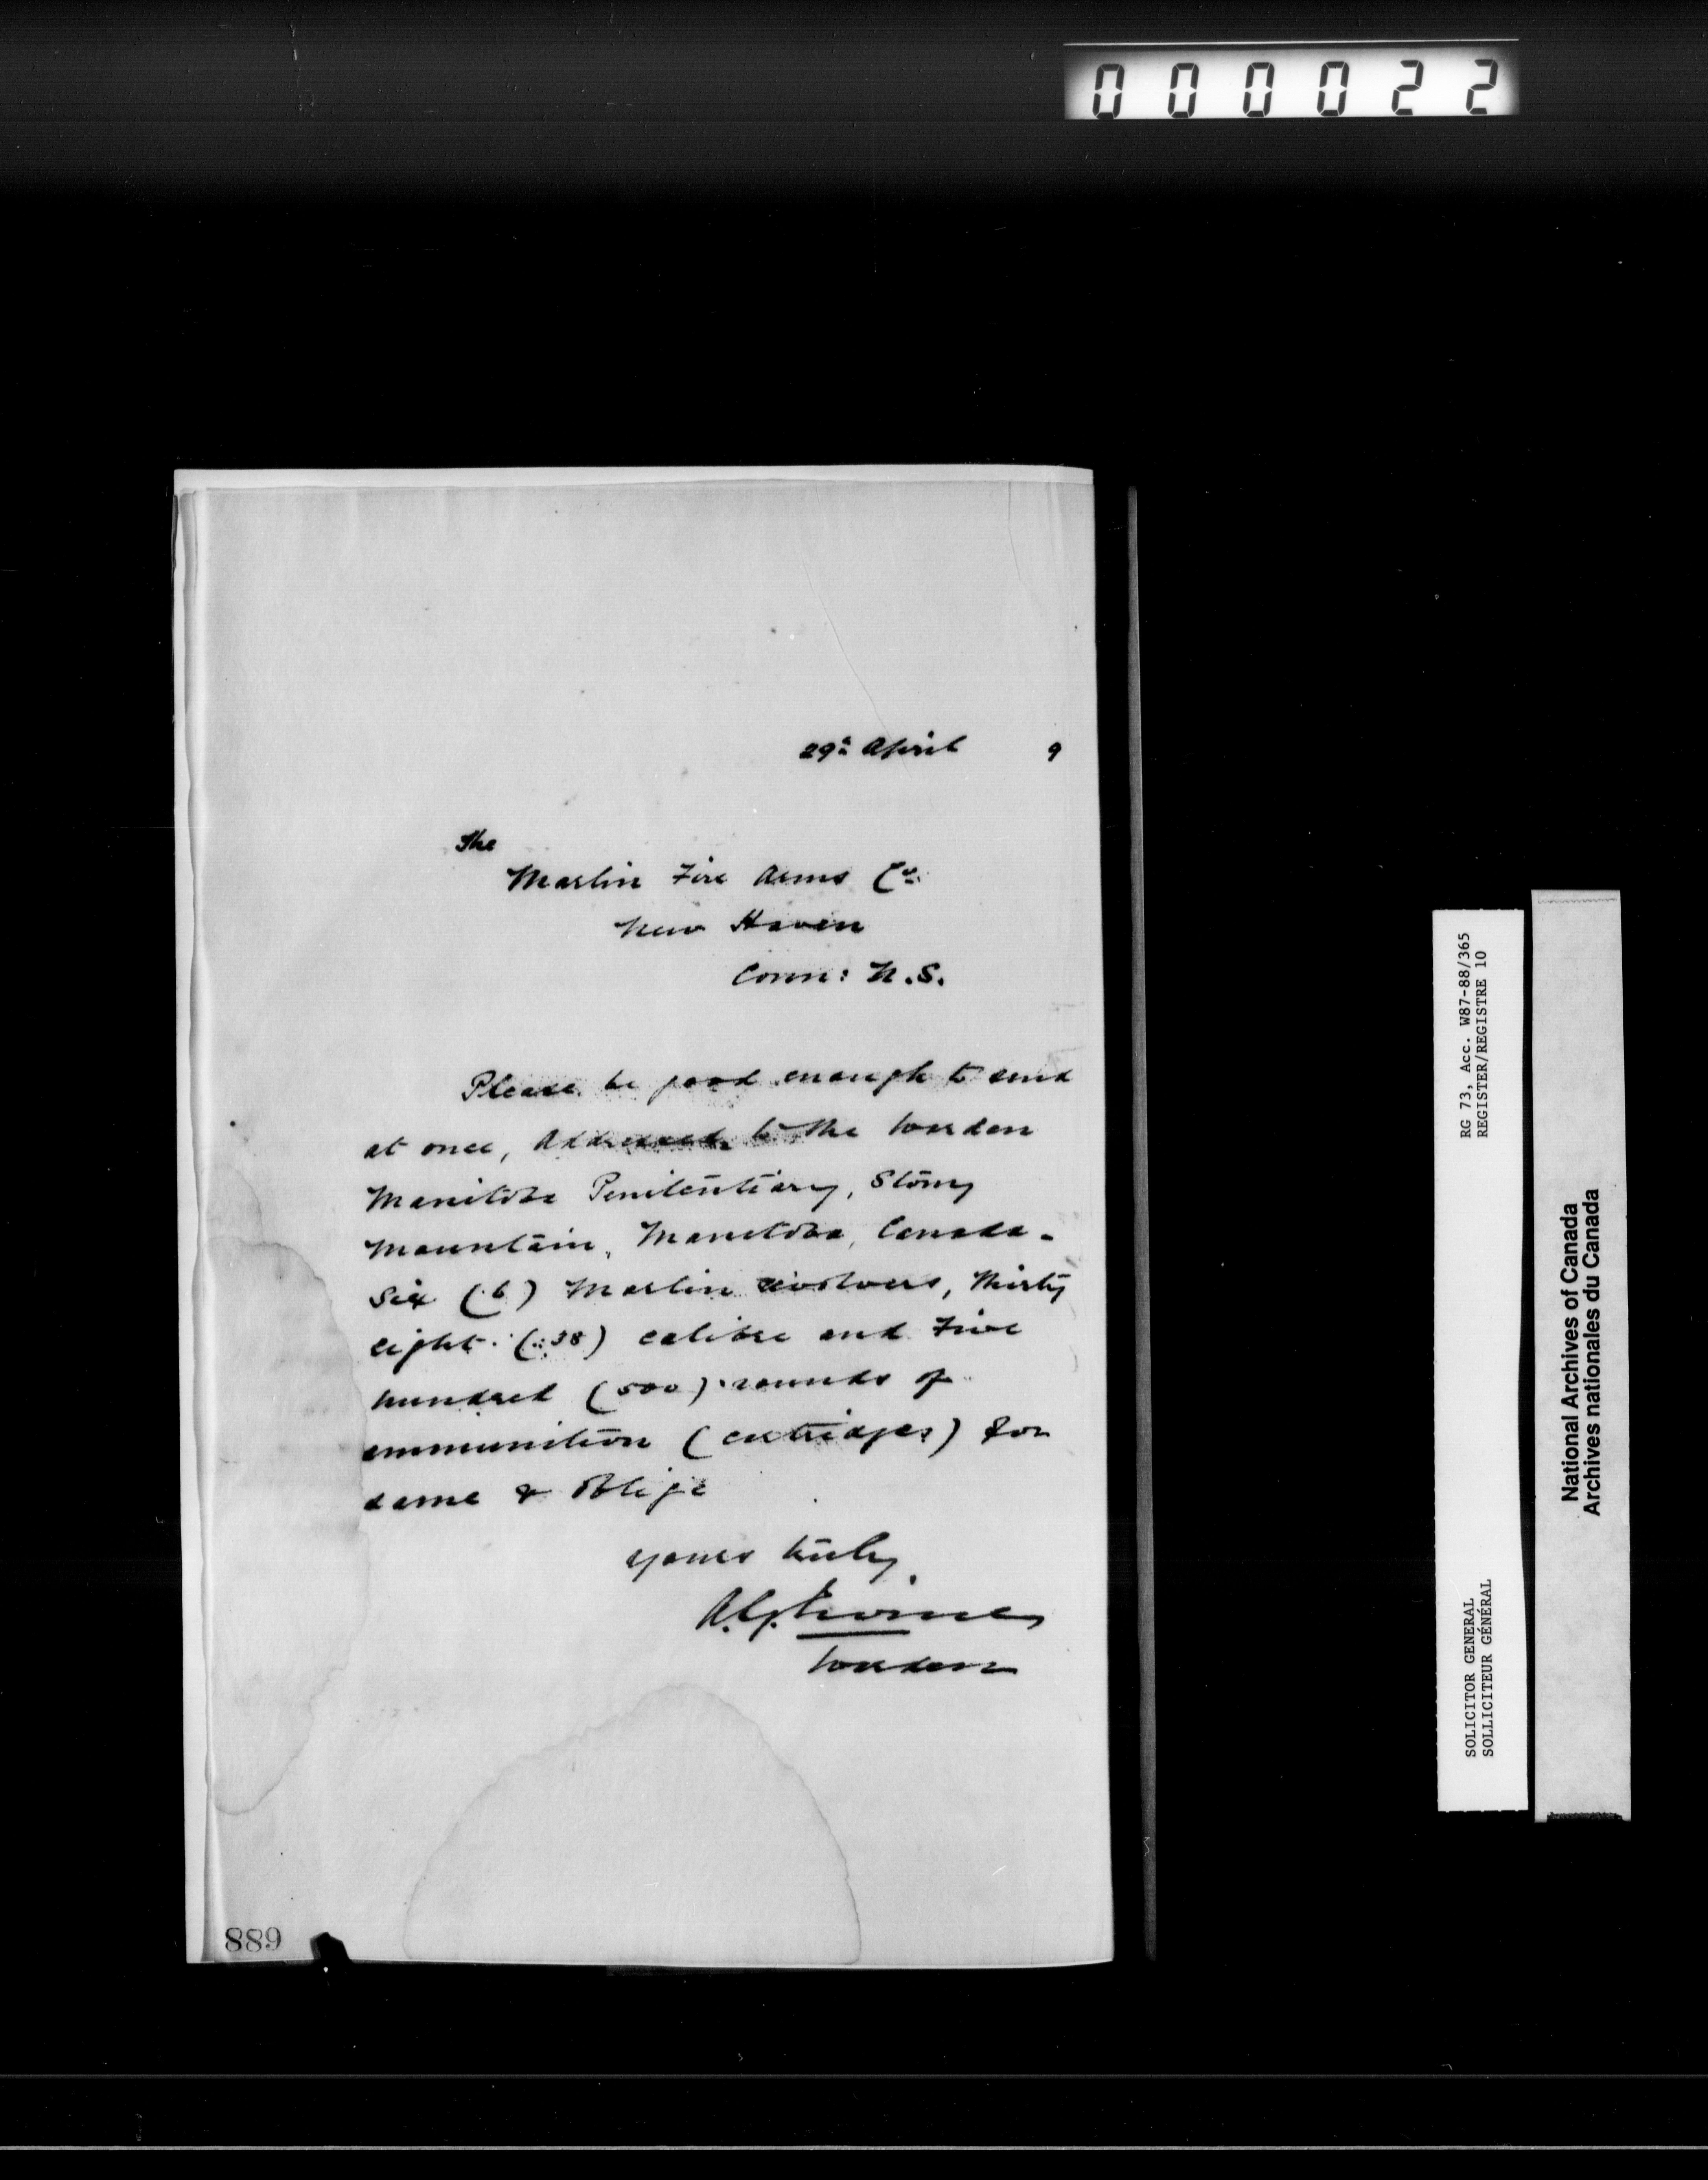 000022
29th April 9
The
Marlin Fire Arms Co.
New Haven
Conn: U.S.
Please be good enough to send
at once, addressed to the Warden
Manitoba Penitentiary, Stony
Mountain, Manitoba, Canada -
Six (6) Marlin revolvers, thirty
eight (.38) calibre and Five
hundred (500) rounds of
ammunition (cartridges) for
same & oblige
Yours truly,
Warden
889
RG 73, Acc. W87-88/365
REGISTER/REGISTRE 10
SOLICITOR GENERAL
SOLLICITEUR GÉNÉRAL
National Archives of Canada
Archives nationales du Canada